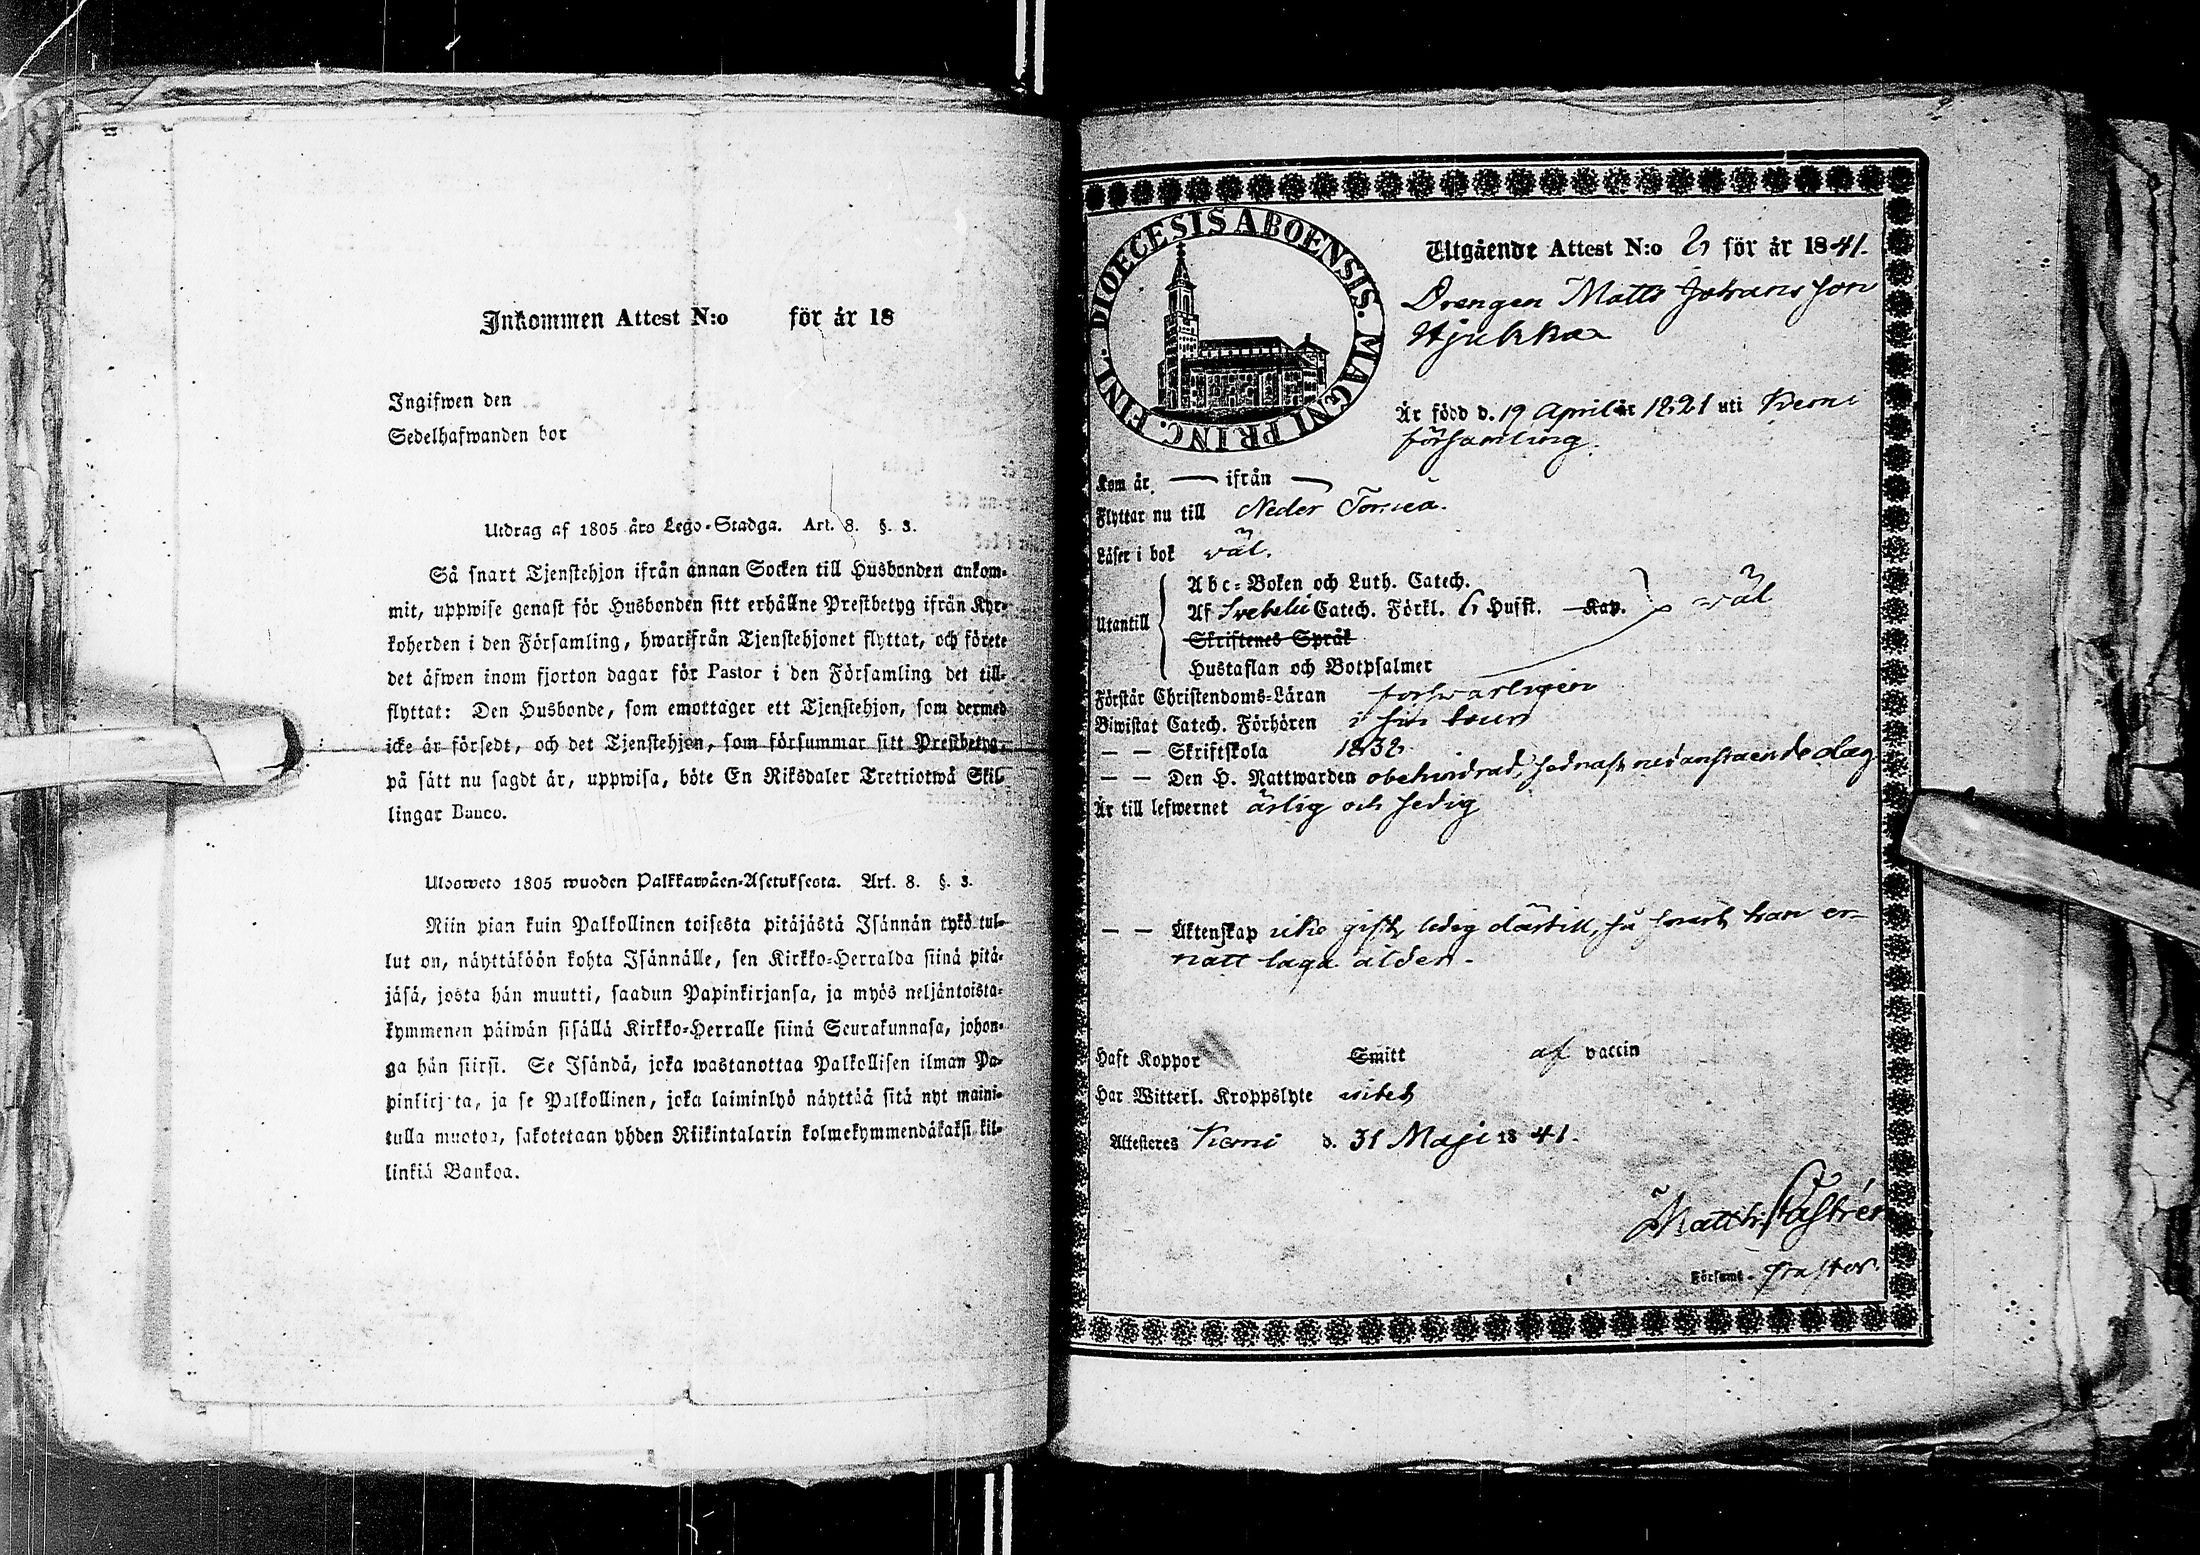 Inkommen Attest N:o för år 18
Ingifwen den
Sedelhafwanden bor
Utdrag af 1805 års Lego-Stadga. Art. 8. §. 3.
Så snart Tjenstehjon ifrån annan Socken till Husbonden ankom-
mit, uppwise genast för Husbonden sitt erhållne Prestbetyg ifrån Kyr-
koherden i den Församling, hwarifrån Tjenstehjonet flyttat, och förete
det äfwen inom fjorton dagar för Pastor i den Församling det till-
flyttat: Den Husbonde, som emottager ett Tjenstehjon, som dermed
icke är försedt, och det Tjenstehjon, som försummar sitt Prestbetyg,
på sätt nu sagdt är, uppwisa, böte En Riksdaler Trettiotwå Skil-
lingar Banco.
Ulosweto 1805 wuoden Palkkawäen-Asetuksesta. Art. 8. §. 3.
Niin pian kuin Palkollinen toisesta pitäjästä Isännän tykö tul-
lut on, näyttäköön kohta Isännälle, sen Kirkko-Herralda siinä pitä-
jäsä, josta hän muutti, saadun Papinkirjansa, ja myös neljäntoista-
kymmenen päiwän sisällä Kirkko-Herralle siinä Seurakunnasa, johon-
ga hän siirsi. Se Isändä, joka wastanottaa Palkollisen ilman Pa-
pinkirjata, ja se Palkollinen, joka laiminlyö näyttää sitä nyt maini-
tulla muotoa, sakotetaan yhden Riikintalarin kolmekymmendäkaksi kil-
linkiä Bankoa.
DIOECESIS ABOENSIS. MAGNI PRINC. FINL.
Utgående Attest N:o 6 för år 1841.
Drengen Matts Johansson
Hjukka
Är född d. 19 April år 1821 uti Kemi
församling.
Kom år — ifrån —
Flyttar nu till Neder Torneå.
Läser i bok väl.
Abc-Boken och Luth. Catech.
Utantill Af Svebelii Catech. Förkl. 6 Hufst. Kap. väl
Skriftenes Språk
Hustaflan och Botpsalmer
Förstår Christendoms-Läran försvarligen
Biwistat Catech. Förhören i sin tour
— — Skriftskola 1838
— — Den H. Nattwarden obehindrad, sednast nedanstående dag
Är till lefwernet ärlig och sedig
— — Äktenskap icke gift, ledig därtill, så snart han er-
nått laga ålder.
Haft Koppor Smitt af vaccin
Har Witterl. Kroppslyte intet
Attesteres Kemi d. 31 Maji 1841.
Matth. Castrén
Församl. Pastor.